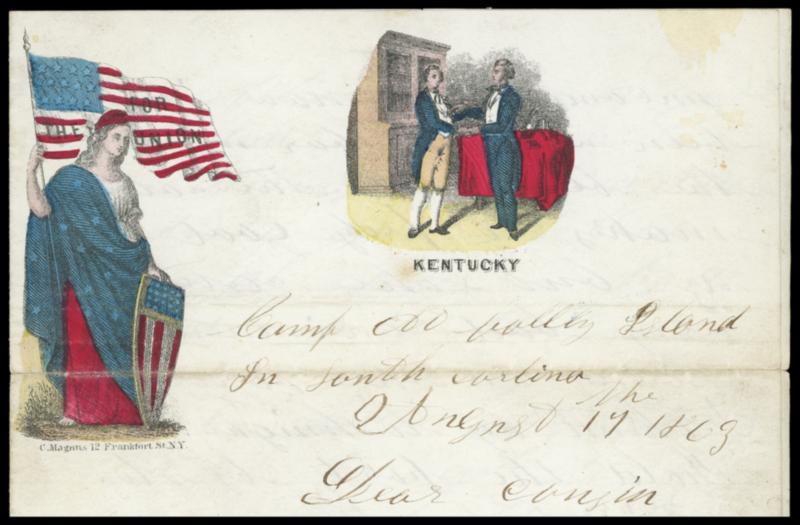 FOR
THE UNION
KENTUCKY
C. Magnus 12 Frankfort St. N.Y.
Camp At folley Island
In South Carlina
August the 17 1863
Dear Cousin